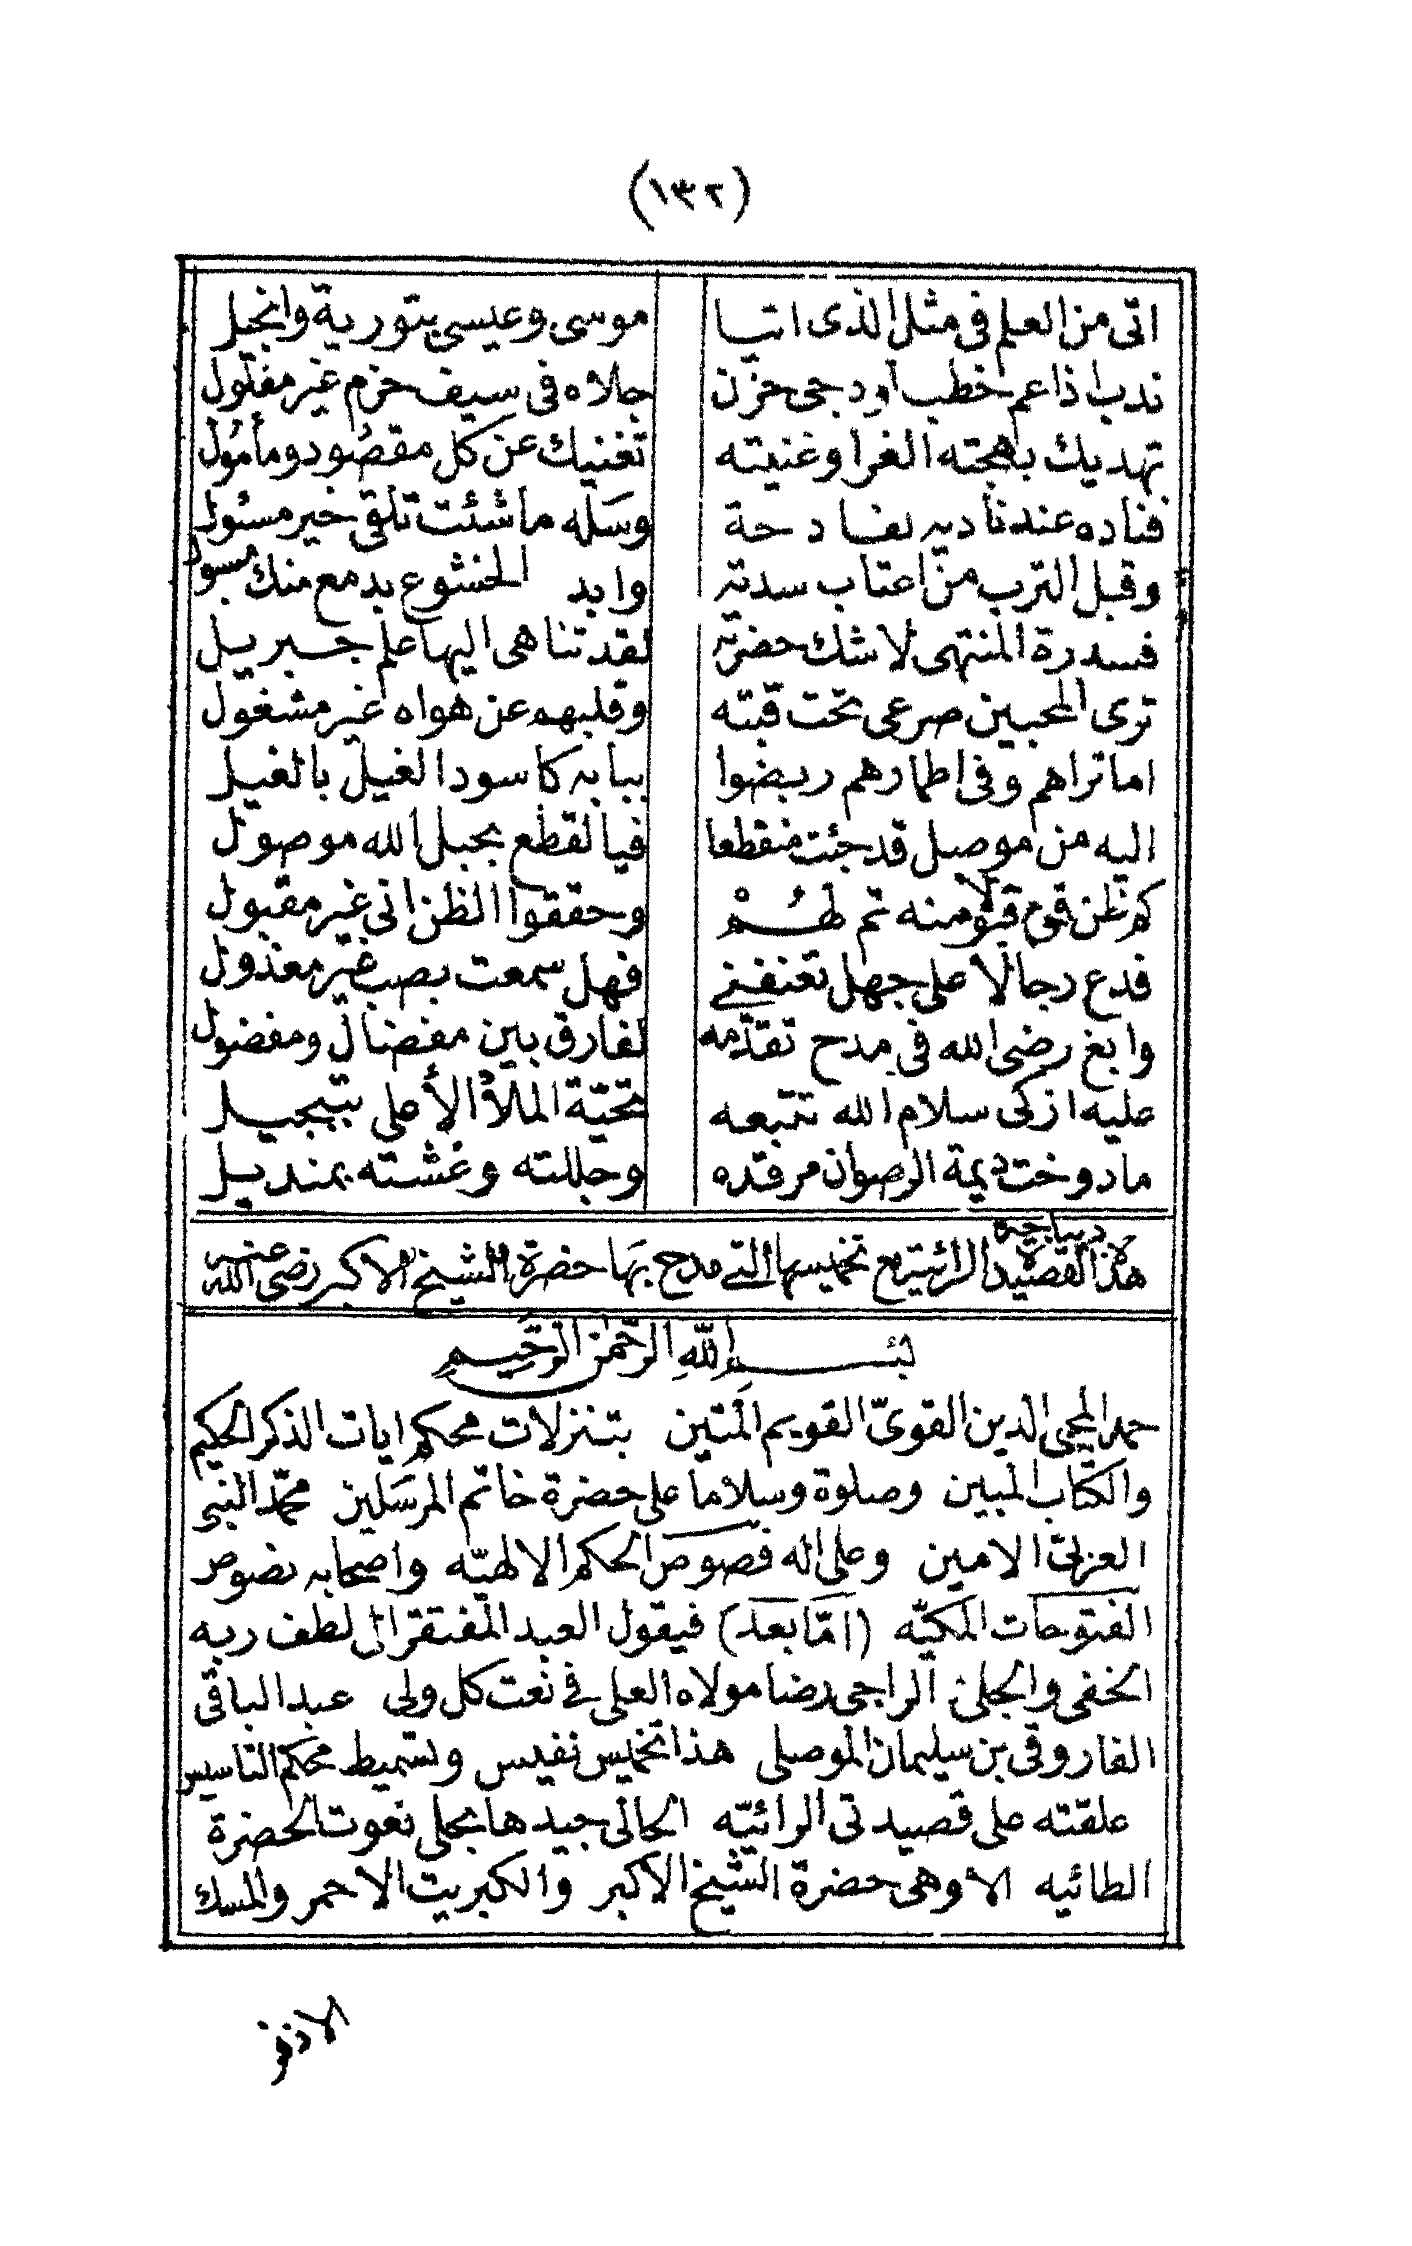 (١٣٢)
اتى من العلم فى مثل الذى اتيا موسى وعيسى بتورية وانجيل
ندب اذا عم خطب أو دجى حزن جلاه فى سيف حزم غير مفلول
تهديك بهجته الغرا وغنيته تغنيك عن كل مقصود ومأمول
فناده عند ناديه لفادحة وسله ما شئت تلقى خير مسئول
وقبل الترب من اعتاب سدته وابد الخشوع بدمع منك مسبول
فسدرة المنتهى لا شك حضرته لقد تناهى اليها علم جبريل
ترى المحبين صرعى تحت قبته وقلبهم عن هواه غير مشغول
اما تراهم وفى اطمارهم ربضوا ببابه كاسود الغيل بالغيل
اليه من موصل قد جئت منقطعا فيا لقطع بحبل الله موصول
كم ظن قوم قتولا منه تم لهم وحققوا الظن انى غير مقبول
فدع رجالا على جهل تعنفنى فهل سمعت بصب غير معذول
وابغ رضى الله فى مدح تقدمه لفارق بين مفضال ومفضول
عليه ازكى سلام الله تتبعه تحيّة الملأ الأعلى بتبجيل
ما دوخت ديمة الرضوان مرقده وجللته وغشته بمنديل
ديباجة
هذه القصيدة الرائية مع تخميسها التى مدح بها حضرة الشيخ الاكبر رضى الله عنه
بسم الله الرحمن الرحيم
حمدا لمحيى الدين القوىّ القويم المتين بتنزلات محكم ايات الذكر الحكيم
والكتاب المبين وصلوة وسلاما على حضرة خاتم المرسلين محمّد النبى
العربىّ الامين وعلى اله فصوص الحكم الالهيّه واصحابه نصوص
الفتوحات المكيّه (امّا بعد) فيقول العبد المفتقر الى لطف ربه
الخفى والجلى الراجى رضا مولاه العلى فى نعت كل ولى عبد الباقى
الفاروقى بن سليمان الموصلى هذا تخميس نفيس وتسميط محكم التاسيس
علقته على قصيدتى الرائيّه الحالى جيدها بحلى نعوت الحضرة
الطائيه الا وهى حضرة الشيخ الاكبر والكبريت الاحمر والمسك
الاذفر